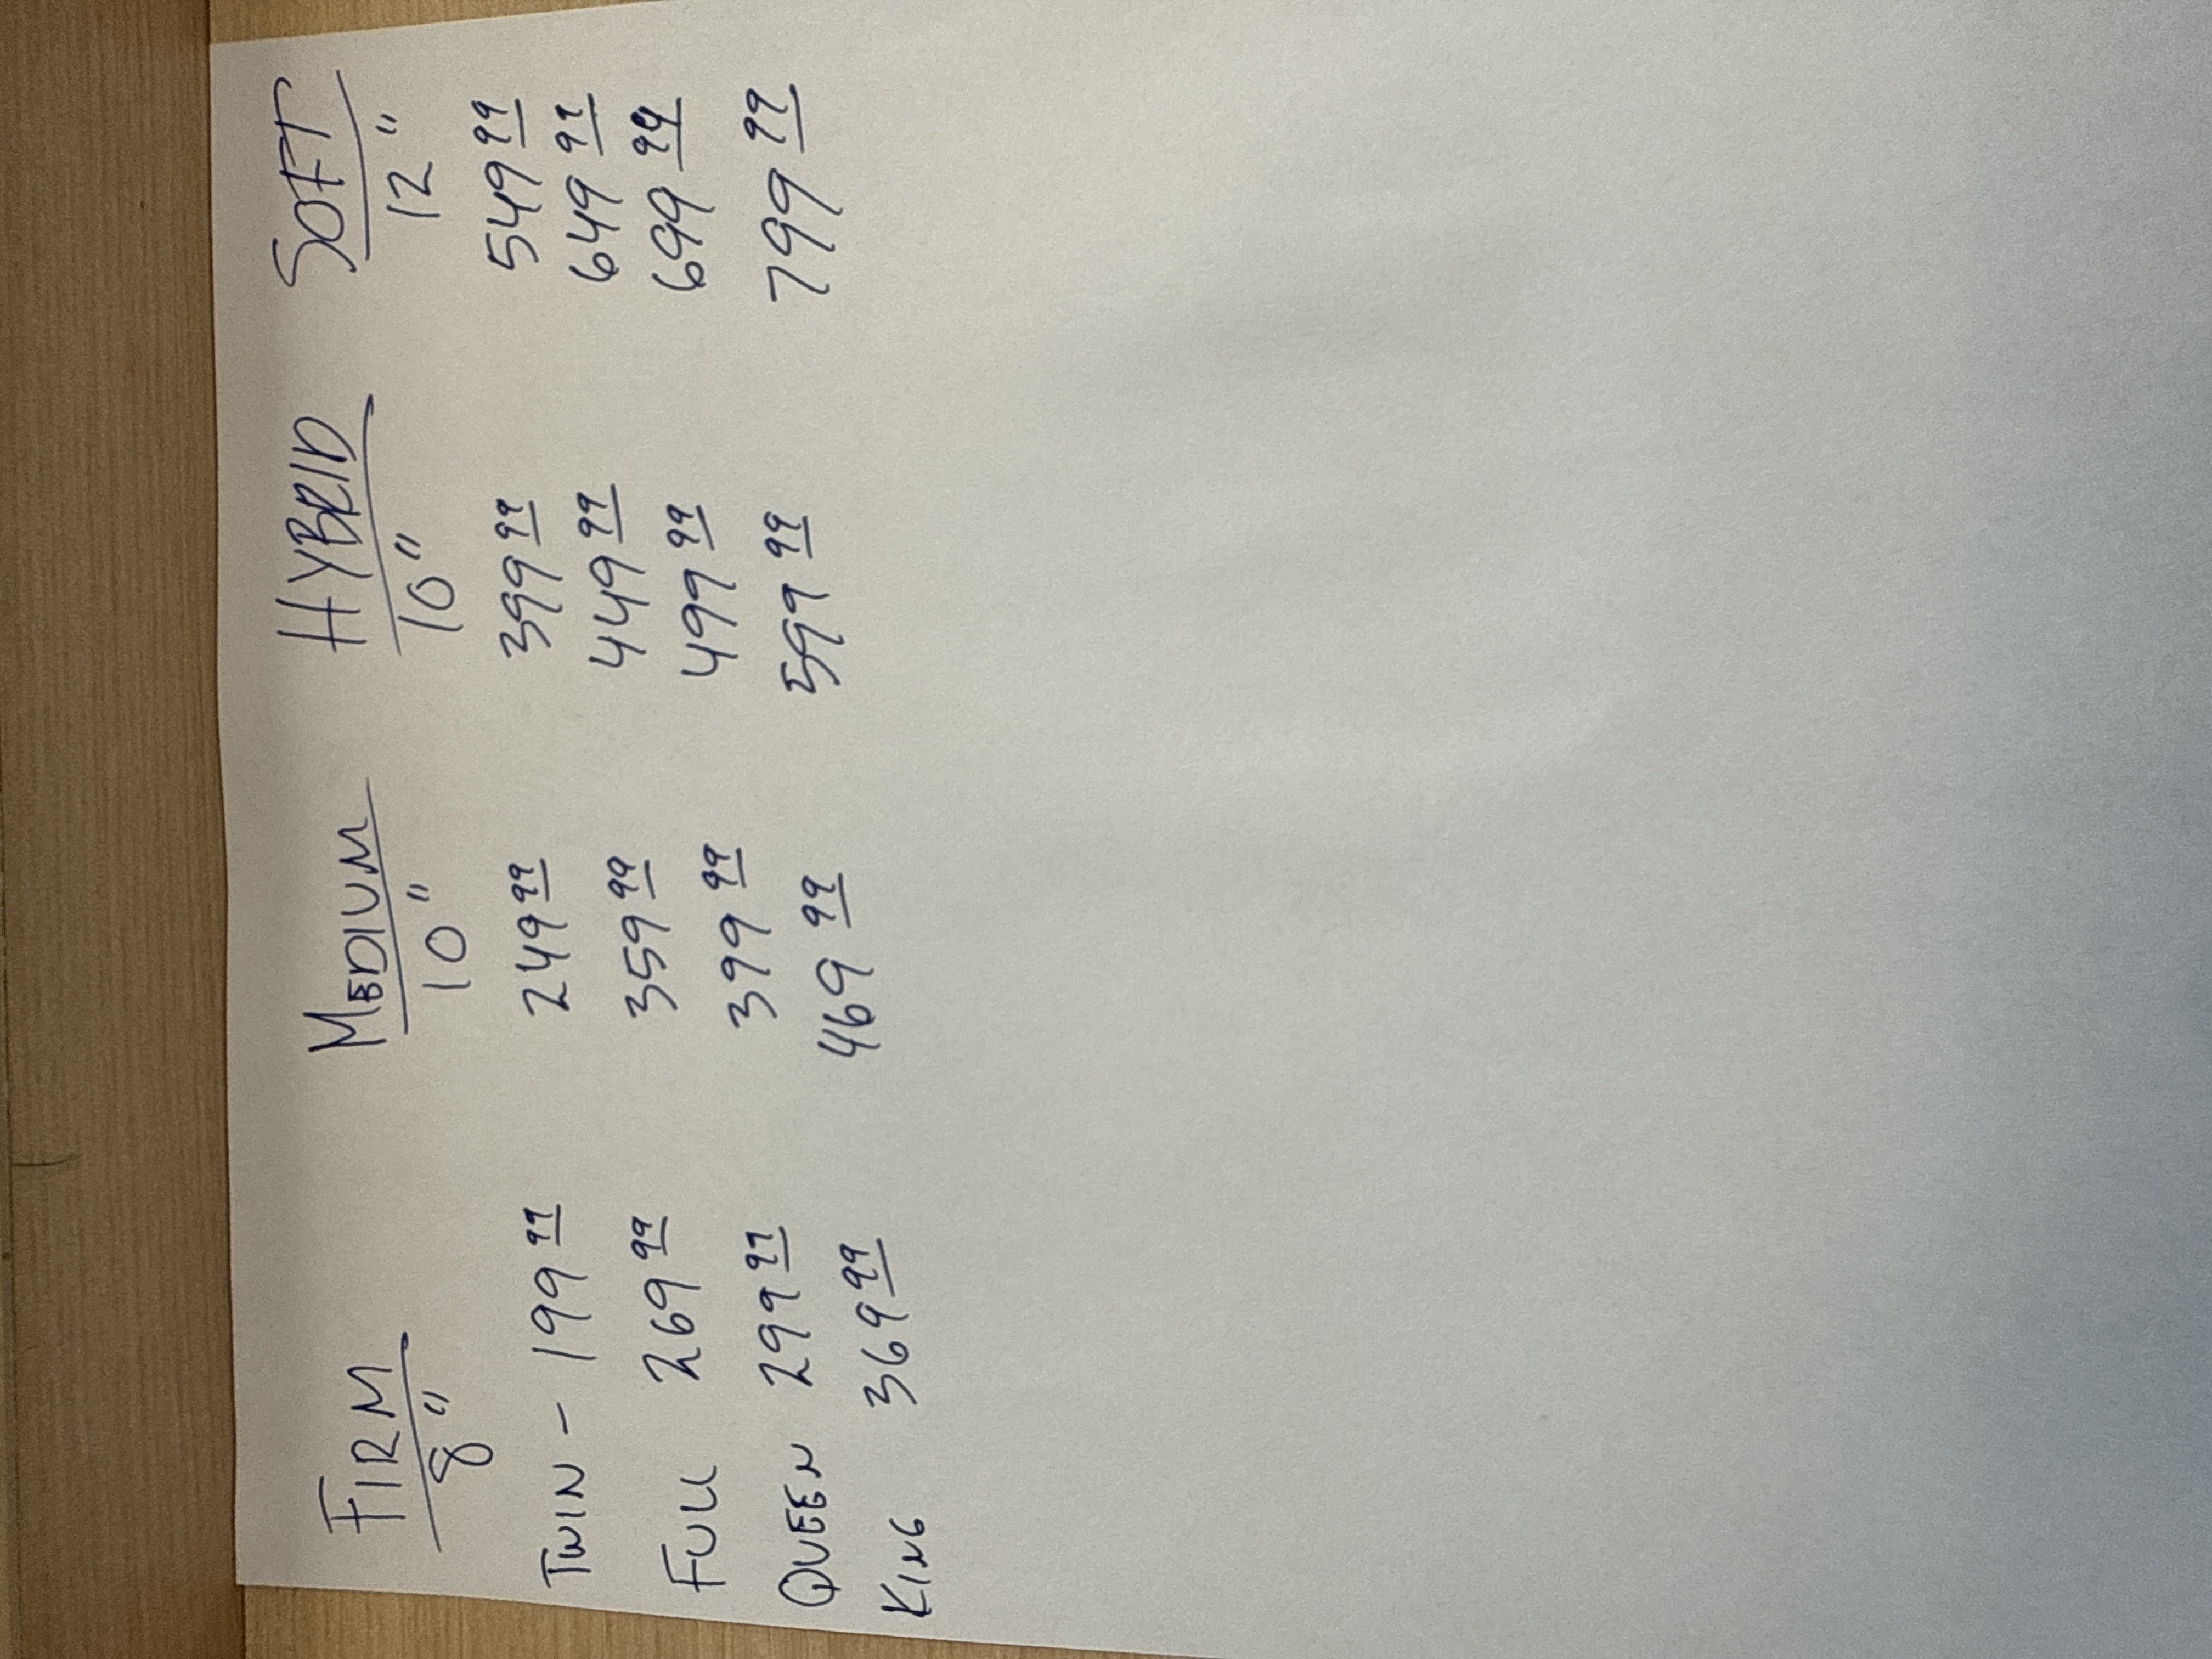 FIRM MEDIUM HYBRID SOFT
8" 10" 10" 12"
TWIN - 199 99 249 99 399 99 549 99
FULL 269 99 359 99 449 99 649 99
QUEEN 299 99 399 99 499 99 699 99
KING 369 99 469 99 599 99 799 99